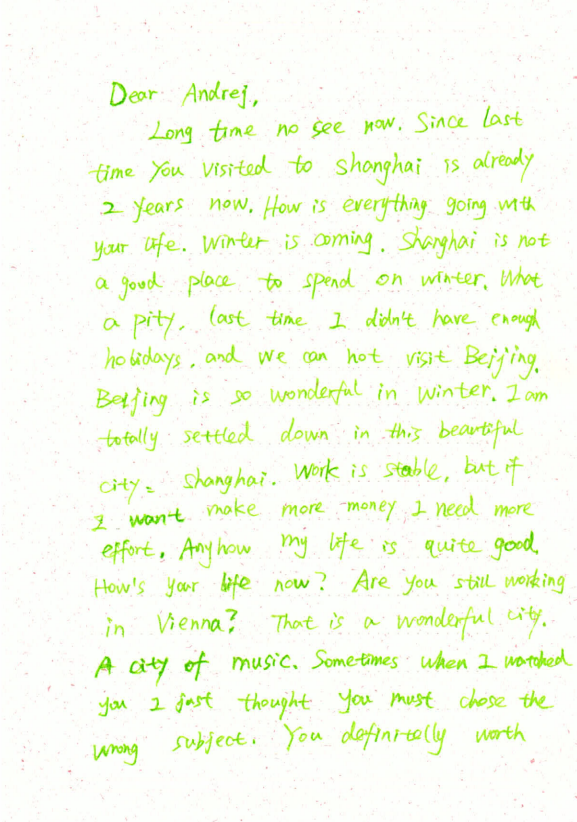 Dear Andrej,
Long time no see now. Since last
time you visited to shanghai is already
2 years now. How is everything going with
your life. Winter is coming. Shanghai is not
a good place to spend on winter. What
a pity, last time I didn't have enough
holidays, and we can not visit Beijing.
Beijing is so wonderful in winter. I am
totally settled down in this beautiful
city - shanghai. Work is stable, but if
I want make more money I need more
effort. Anyhow my life is quite good.
How's your life now? Are you still working
in Vienna? That is a wonderful city.
A city of music. Sometimes when I watched
you I just thought you must chose the
wrong subject. You definitelly worth